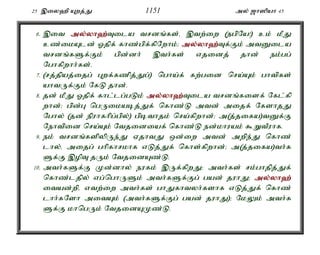 25 இலைஹி யுறத்து 1151 அல் ஜாஸியா 45
6. இவை அல்லாஹ்வுடைய வசனங்கள். இவற்றை (நபியே) உம் மீது
உண்மையுடன் ஓதிக் காண்பிக்கிறோம்; அல்லாஹ்வுக்கும் அவனுடைய
வசனங்களுக்கும் பின்னர் இவர்கள் எதனைத் தான் நம்பப்
போகிறார்கள்.
7. (சத்தியத்தைப் புறக்கணித்துப்) பொய்க் கற்பனை செய்யும் பாவிகள்
யாவருக்கும் கேடு தான்.
8. தன் மீது ஓதிக் காட்டப்படும் அல்லாஹ்வுடைய வசனங்களைக் கேட்கி
றான்; பின்பு பெருமையடித்துக் கொண்டு அவன் அதைக் கேளாதது
போல் (தன் நிராகரிப்பில்) பிடிவாதம் செய்கிறான்; அ(த்தகைய)வனுக்கு
நோவினை செய்யும் வேதனையைக் கொண்டு நன்மாராயம் கூறுவீராக.
9. நம் வசனங்களிலிருந்து ஏதாவது ஒன்றை அவன் அறிந்து கொண்
டால், அதைப் பரிகாசமாக எடுத்துக் கொள்கிறான்; அ(த்தகைய)வர்க
ளுக்கு இழிவு தரும் வேதனையுண்டு.
10. அவர்களுக்கு முன்னால் நரகம் இருக்கிறது; அவர்கள் சம்பாதித்துக்
கொண்டதில் எப்பொருளும் அவர்களுக்குப் பயன் தராது; அல்லாஹ்
வையன்றி, எவற்றை அவர்கள் பாதுகாவலர்களாக எடுத்துக் கொண்
டார்களோ அவையும் (அவர்களுக்குப் பயன் தராது); மேலும் அவர்க
ளுக்கு மாபெரும் வேதனையுமுண்டு.